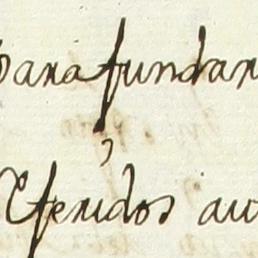 para fundar
referidos au